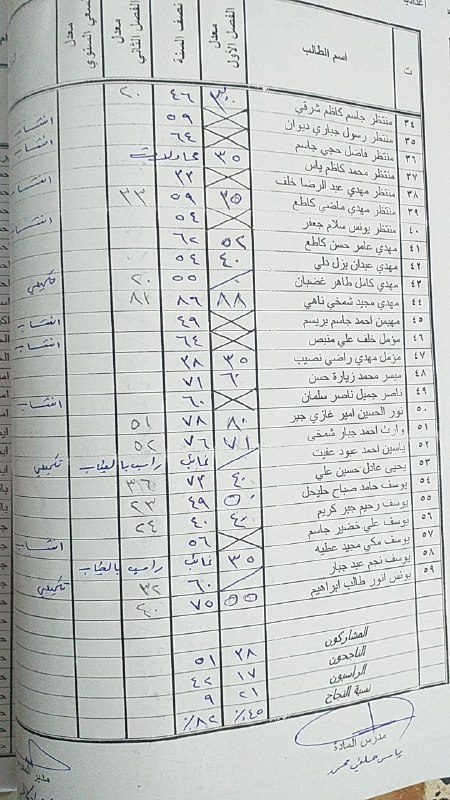 ت اسم الطالب معدل الفصل الأول نصف السنة معدل الفصل الثاني معدل السعي السنوي
٣٤ منتظر جاسم كاظم شرقي ٣٠ ٤٦ ٢٠
٣٥ منتظر رسول جباري ديوان ٥٩ انتساب
٣٦ منتظر فاضل حجي جاسم ٦٤ انتساب
٣٧ منتظر محمد كاظم ياس ٣٥
٣٨ منتظر مهدي عبد الرضا خلف ٣٣ انتساب
٣٩ منتظر مهدي ماضي كاطع ٣٥ ٥٩ ٣٣
٤٠ منتظر يونس سلام جعفر ٥٤ انتساب
٤١ مهدي عامر حسن كاطع ٥٢ ٦٢
٤٢ مهدي عبدان بزل دلي ٤٠ ٥٤
٤٣ مهدي كامل طاهر غضبان ٥٥ ٢٠ تكميلي
٤٤ مهدي مجيد شمخي ناهي ٨٨ ٨٦ ٨١
٤٥ مهيمن احمد جاسم بريسم ٤٩ انتساب
٤٦ مؤمل خلف علي منيص ٦٤ انتساب
٤٧ مؤمل مهدي راضي نصيب ٣٥ ٣٨
٤٨ ميسر محمد زيارة حسن ٦٠ ٧١
٤٩ ناصر جميل ناصر سلمان ٦٠ انتساب
٥٠ نور الحسين امير غازي جبر ٨٠ ٧٨ ٥١
٥١ وارث احمد جبار شمخي ٧١ ٧٦ ٥٢
٥٢ ياسين احمد عبود عفيت غائب راسب بالغياب تكميلي
٥٣ يحيى عادل حسين علي ٤٠ ٧٣ ٣٦
٥٤ يوسف حامد صباح طليحل ٥٠ ٤٩ ٢٣
٥٥ يوسف رحيم جبر كريم ٤٠ ٤٠ ٢٤
٥٦ يوسف علي خضير جاسم ٥٦ انتساب
٥٧ يوسف مكي مجيد عطيه ٣٥ غائب راسب بالغياب
٥٨ يوسف نجم عبد جبار ٦٠ ٣٢ تكميلي
٥٩ يونس انور طالب ابراهيم ٥٥ ٧٥ ٤٠
المشاركون ٣٨ ٥١
الناجحون ١٧ ٤٢
الراسبون ٢١ ٩
نسبة النجاح ٤٥٪ ٨٢٪
مدرس المادة
مدير